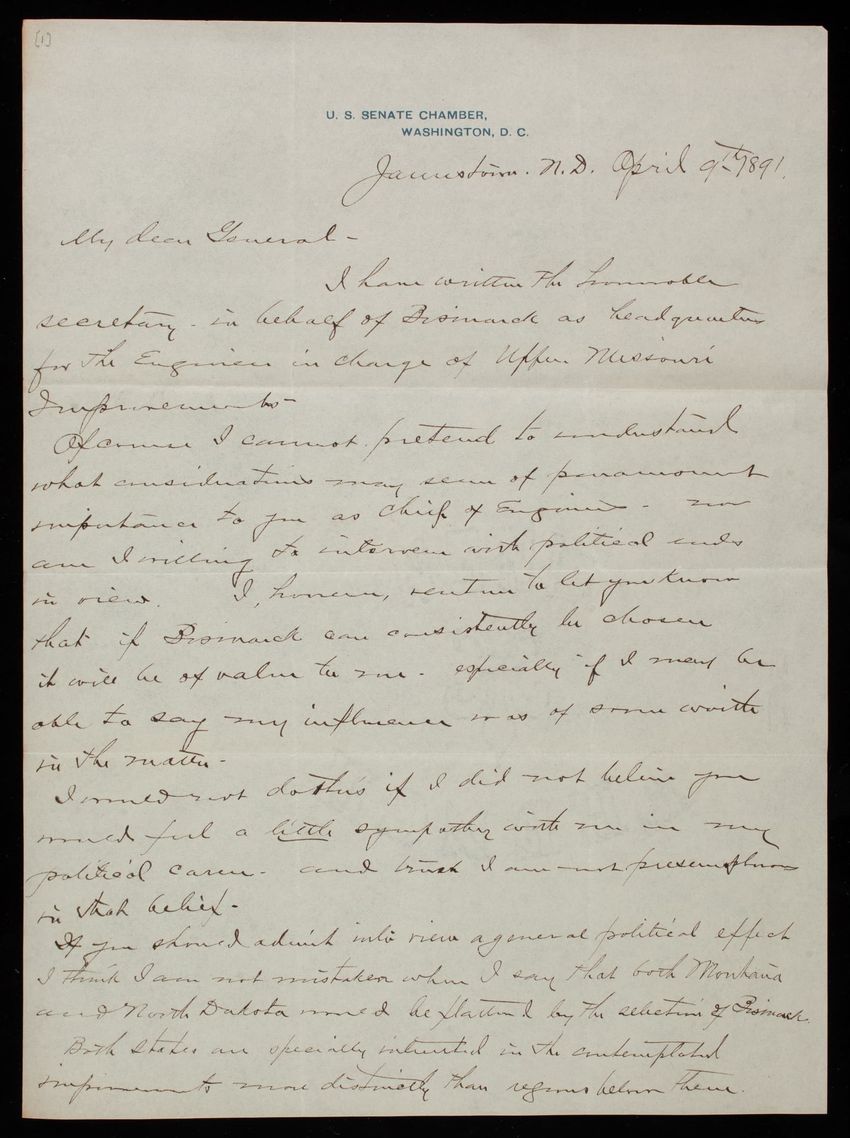 [1]
U. S. SENATE CHAMBER,
WASHINGTON, D. C.
Jamestown. N.D. April 9th 1891.
My dear General-
I have written the honorable
secretary - in behalf of Bismarck as headquarters
for the Engineer in charge of Upper Missouri
Improvements-
Of course I cannot pretend to understand
what considerations may seem of paramount
importance to you as Chief of Engineers - nor
am I willing to intervene with political ends
in view. I, however, venture to let you know
that if Bismarck can consistently be chosen
it will be of value to me - especially if I may be
able to say my influence was of some worth
in the matter-
I would not do this if I did not believe you
would feel a little sympathy with me in my
political career - and trust I am not presumptuous
in that belief-
If you should admit into view a general political effect
I think I am not mistaken when I say that both Montana
and North Dakota would be flattered by the selection of Bismarck.
Both states are specially interested in the contemplated
improvements more distinctly than regions below them.